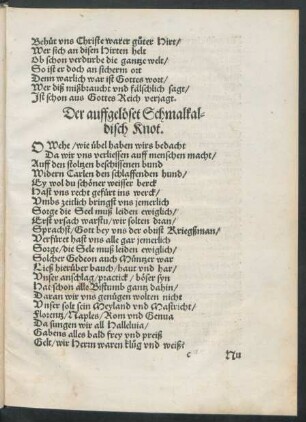 Behüt vns Christe warer güter Hirt/
Wer sich an disen Hirten helt
Ob schon verdurbe die gantze welt/
So ist er doch an sicherm ort
Denn warlich war ist Gottes wort/
Wer diß mißbraucht vnd fälschlich sagt/
Ist schon aus Gottes Reich verjagt.
Der auffgelöset Schmalkal-
disch Knot.
O Wehe/wie übel haben wirs bedacht
Da wir vns verliessen auff menschen macht/
Auff den stoltzen beschissenen bund
Widern Carlen den schlaffenden hund/
Ey wol du schöner weisser berck
Hast vns recht gefürt ins werck/
Vmbs zeitlich bringst vns jemerlich
Sorge die Seel muß leiden ewiglich/
Erst vrsach warstu/wir solten dran/
Sprachst/Gott bey vns der obrist Kriegßman/
Verfüret hast vns alle gar jemerlich
Sorge/die Sele muß leiden ewiglich/
Solcher Gedeon auch Müntzer war
Ließ hierüber bauch/haut vnd har/
Vnser anschlag/practick/böser syn
Hat schon alle Bistumb gantz dahin/
Daran wir vns genügen wolten nicht
Vnser solt sein Meyland vnd Mastricht/
Florentz/Naples/Rom vnd Genua
Da sungen wir all Halleluia/
Gabens alles bald frey vnd preiß
Gelt/wir Herrn waren klüg vnd weiß?
c
Nu